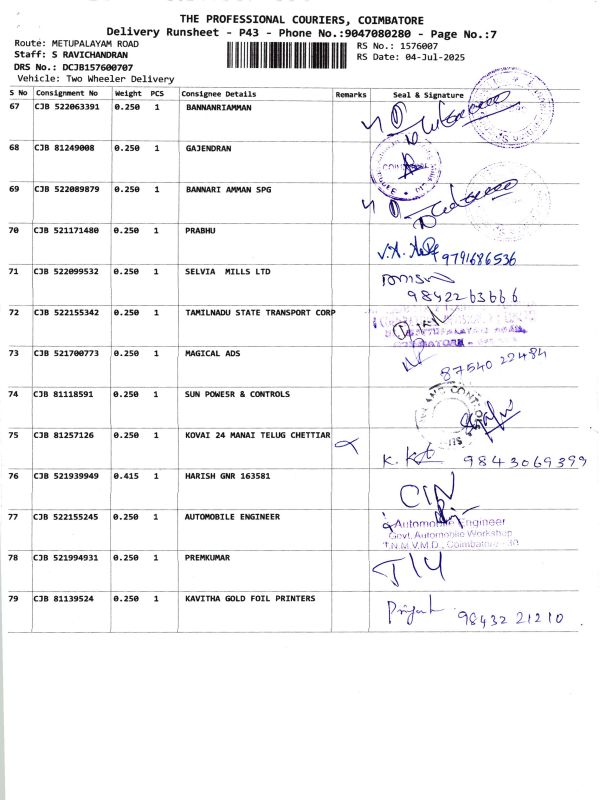 THE PROFESSIONAL COURIERS, COIMBATORE
Delivery Runsheet - P43 - Phone No.:9047080280 - Page No.:7
Route: METUPALAYAM ROAD RS No.: 1576007
Staff: S RAVICHANDRAN RS Date: 04-Jul-2025
DRS No.: DCJB157600707
Vehicle: Two Wheeler Delivery
S No Consignment No Weight PCS Consignee Details Remarks Seal & Signature
67 CJB 522063391 0.250 1 BANNANRIAMMAN
68 CJB 81249008 0.250 1 GAJENDRAN
69 CJB 522089879 0.250 1 BANNARI AMMAN SPG
70 CJB 521171480 0.250 1 PRABHU 9791686536
71 CJB 522099532 0.250 1 SELVIA MILLS LTD 9842263666
72 CJB 522155342 0.250 1 TAMILNADU STATE TRANSPORT CORP
73 CJB 521700773 0.250 1 MAGICAL ADS 87540 22484
74 CJB 81118591 0.250 1 SUN POWE5R & CONTROLS
75 CJB 81257126 0.250 1 KOVAI 24 MANAI TELUG CHETTIAR 9843069399
76 CJB 521939949 0.415 1 HARISH GNR 163581
77 CJB 522155245 0.250 1 AUTOMOBILE ENGINEER
Automobile Engineer
Govt. Automobile Workshop
T.N.M.V.M.D., Coimbatore
78 CJB 521994931 0.250 1 PREMKUMAR
79 CJB 81139524 0.250 1 KAVITHA GOLD FOIL PRINTERS 98432 21210